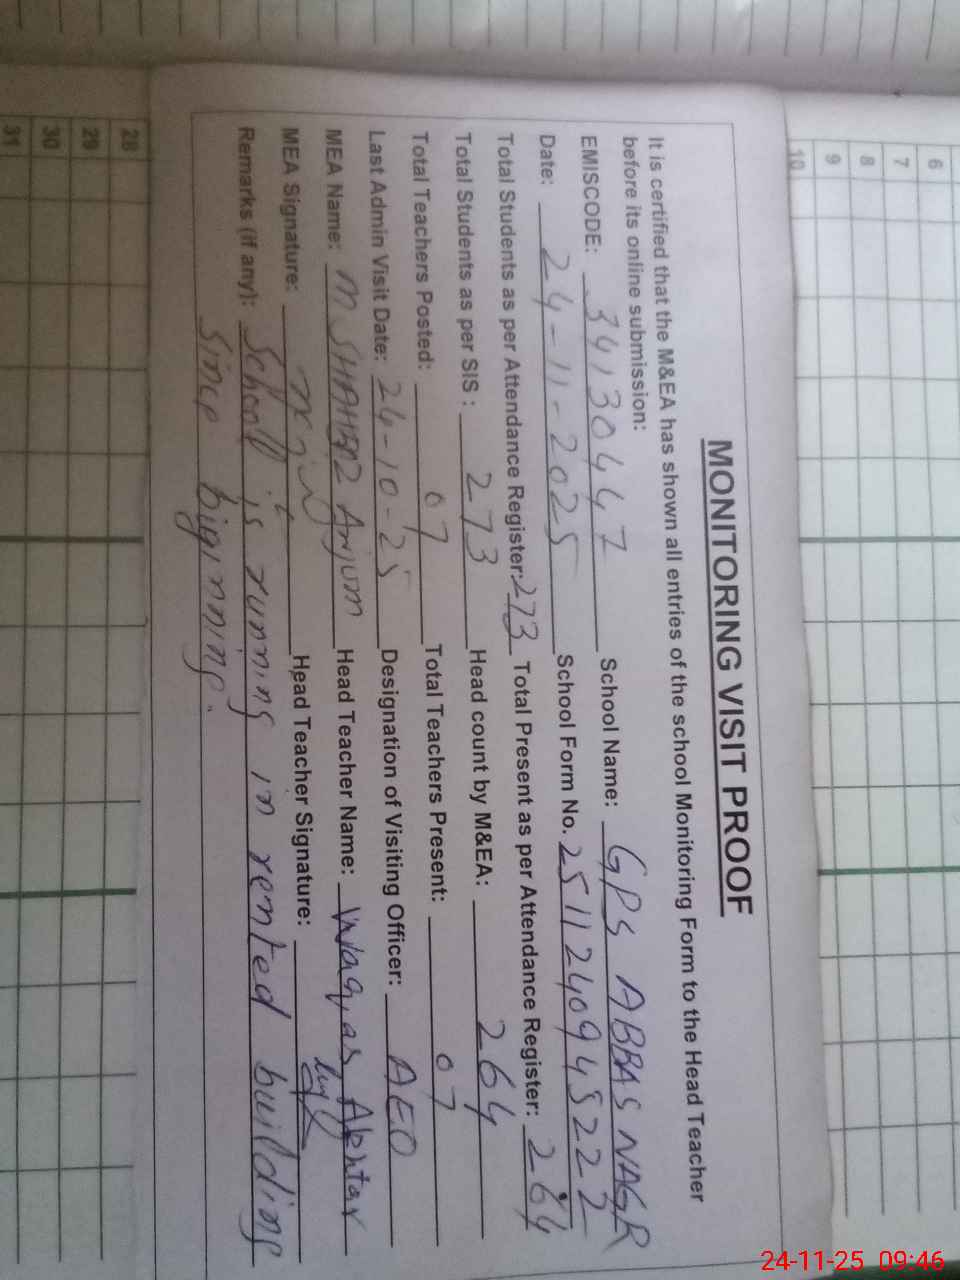 MONITORING VISIT PROOF
It is certified that the M&EA has shown all entries of the school Monitoring Form to the Head Teacher
before its online submission:
EMISCODE: 34130447 School Name: GPS ABBAS NAGR
Date: 24-11-2025 School Form No. 25112409452​2
Total Students as per Attendance Register: 273 Total Present as per Attendance Register: 264
Total Students as per SIS : 273 Head count by M&EA: 264
Total Teachers Posted: 07 Total Teachers Present: 07
Last Admin Visit Date: 24-10-25 Designation of Visiting Officer: AEO
MEA Name: M SHAHBAZ Anjum Head Teacher Name: Waqas Akhtar
MEA Signature: Head Teacher Signature:
Remarks (if any): School is runing in rented building
since biginning.
6
7
8
9
10
28
29
30
31
24-11-25 09:46